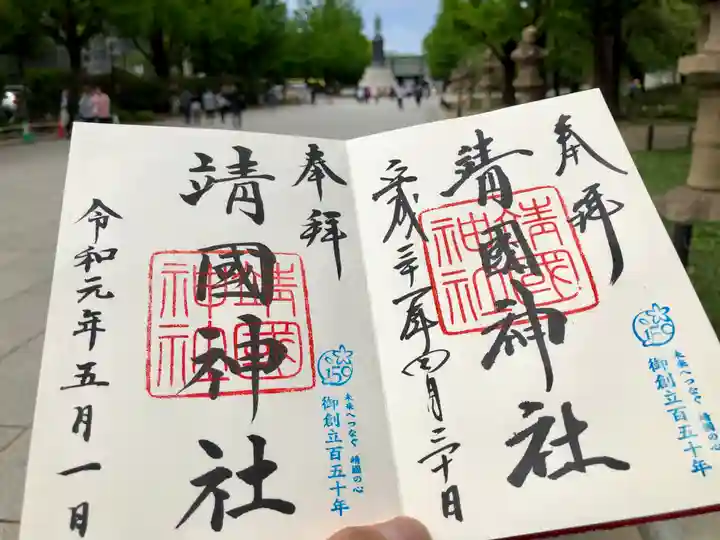 奉拝
靖國神社
平成三十一年四月三十日
靖國神社
150
未来へつなぐ 靖國の心
御創立百五十年
奉拝
靖國神社
令和元年五月一日
靖國神社
150
未来へつなぐ 靖國の心
御創立百五十年